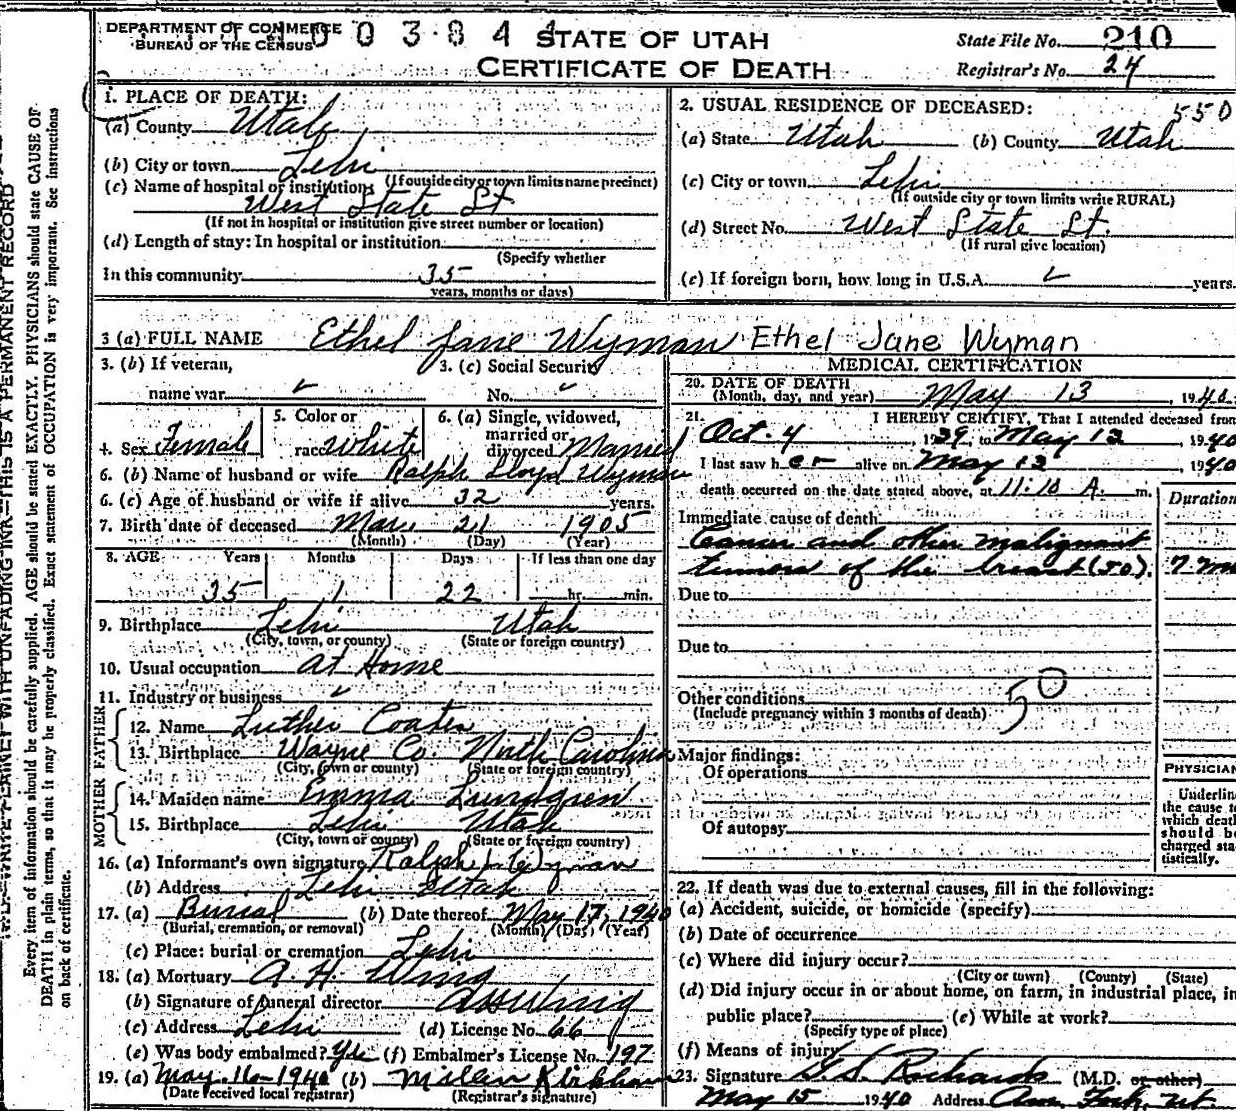 DEPARTMENT OF COMMERCE
BUREAU OF THE CENSUS
0 0 3 8 4 4
STATE OF UTAH
CERTIFICATE OF DEATH
State File No. 210
Registrar's No. 24
1. PLACE OF DEATH:
(a) County Utah
(b) City or town Lehi
(If outside city or town limits name precinct)
(c) Name of hospital or institution:
West State St
(If not in hospital or institution give street number or location)
(d) Length of stay: In hospital or institution
(Specify whether
In this community 35
years, months or days)
2. USUAL RESIDENCE OF DECEASED: 550
(a) State Utah (b) County Utah
(c) City or town Lehi
(If outside city or town limits write RURAL)
(d) Street No. West State St.
(If rural give location)
(e) If foreign born, how long in U.S.A. years.
3 (a) FULL NAME Ethel Jane Wyman Ethel Jane Wyman
3. (b) If veteran,
name war
3. (c) Social Security
No.
4. Sex Female
5. Color or
race White
6. (a) Single, widowed,
married or
divorced Married
6. (b) Name of husband or wife Ralph Lloyd Wyman
6. (c) Age of husband or wife if alive 32 years.
7. Birth date of deceased Mar. 21 1905
(Month) (Day) (Year)
8. AGE Years Months Days If less than one day
35 1 22 hr. min.
9. Birthplace Lehi Utah
(City, town, or county) (State or foreign country)
10. Usual occupation at Home
11. Industry or business
FATHER
12. Name Luther Coates
13. Birthplace Wayne Co. North Carolina
(City, town or county) (State or foreign country)
MOTHER
14. Maiden name Emma Lundgren
15. Birthplace Lehi Utah
(City, town or county) (State or foreign country)
16. (a) Informant's own signature Ralph L Wyman
(b) Address Lehi Utah
17. (a) Burial (b) Date thereof May 17, 1940
(Burial, cremation, or removal) (Month) (Day) (Year)
(c) Place: burial or cremation Lehi
18. (a) Mortuary A. H. Wing
(b) Signature of funeral director
(c) Address Lehi (d) License No. 66
(e) Was body embalmed? Yes (f) Embalmer's License No. 197
19. (a) May 16-1940 (b) Kirkham
(Date received local registrar) (Registrar's signature)
MEDICAL CERTIFICATION
20. DATE OF DEATH
(Month, day, and year) May 13, 1940
21. I HEREBY CERTIFY, That I attended deceased from
Oct. 4, 1939, to May 13, 1940
I last saw her alive on May 13 1940
death occurred on the date stated above, at 11:10 A. m.
Duration
Immediate cause of death
Cancer and other malignant
tumors of the breast (50). 7 mo
Due to
Due to
Other conditions
(Include pregnancy within 3 months of death)
50
Major findings:
Of operations
Of autopsy
PHYSICIAN
Underline
the cause to
which death
should be
charged sta-
tistically.
22. If death was due to external causes, fill in the following:
(a) Accident, suicide, or homicide (specify)
(b) Date of occurrence
(c) Where did injury occur?
(City or town) (County) (State)
(d) Did injury occur in or about home, on farm, in industrial place, in
public place? (e) While at work?
(Specify type of place)
(f) Means of injury
23. Signature G. S. Richards (M.D. or other)
May 15 1940 Address Am. Fork, Ut
WRITE PLAINLY WITH UNFADING INK—THIS IS A PERMANENT RECORD
Every item of information should be carefully supplied. AGE should be stated EXACTLY. PHYSICIANS should state CAUSE OF
DEATH in plain terms, so that it may be properly classified. Exact statement of OCCUPATION is very important. See instructions
on back of certificate.